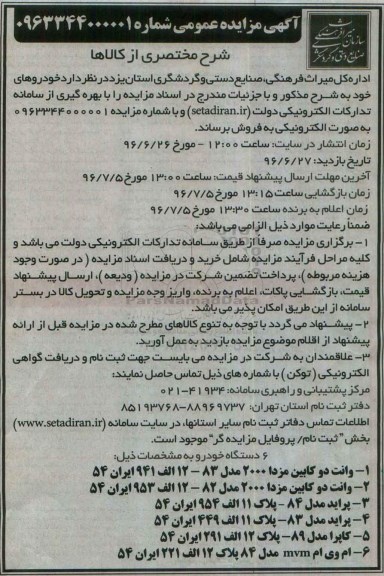 آگهی مزایده عمومی شماره ۰۹۶۳۳۴۴۰۰۰۰۰۱
شرح مختصری از کالاها
اداره کل میراث فرهنگی، صنایع دستی و گردشگری استان یزد در نظر دارد خودروهای
خود به شرح مذکور و با جزئیات مندرج در اسناد مزایده را با بهره گیری از سامانه
تدارکات الکترونیکی دولت (setadiran.ir) و با شماره مزایده ۰۹۶۳۳۴۴۰۰۰۰۰۱
به صورت الکترونیکی به فروش برساند.
زمان انتشار در سایت: ساعت ۱۲:۰۰ - مورخ ۹۶/۶/۲۶
تاریخ بازدید: ۹۶/۶/۲۷
آخرین مهلت ارسال پیشنهاد قیمت: ساعت ۱۳:۰۰ مورخ ۹۶/۷/۵
زمان بازگشایی ساعت ۱۳:۱۵ مورخ ۹۶/۷/۵
زمان اعلام به برنده ساعت ۱۳:۳۰ مورخ ۹۶/۷/۵
ضمناً رعایت موارد ذیل الزامی می باشد:
۱- برگزاری مزایده صرفاً از طریق سامانه تدارکات الکترونیکی دولت می باشد و
کلیه مراحل فرآیند مزایده شامل خرید و دریافت اسناد مزایده (در صورت وجود
هزینه مربوطه)، پرداخت تضمین شرکت در مزایده (ودیعه)، ارسال پیشنهاد
قیمت، بازگشایی پاکات، اعلام به برنده، واریز وجه مزایده و تحویل کالا در بستر
سامانه از این طریق امکان پذیر می باشد.
۲- پیشنهاد می گردد با توجه به تنوع کالاهای مطرح شده در مزایده قبل از ارائه
پیشنهاد از اقلام موضوع مزایده بازدید به عمل آورید.
۳- علاقمندان به شرکت در مزایده می بایست جهت ثبت نام و دریافت گواهی
الکترونیکی (توکن) با شماره های ذیل تماس حاصل نمایند:
مرکز پشتیبانی و راهبری سامانه: ۴۱۹۳۴-۰۲۱
دفتر ثبت نام استان تهران: ۸۸۹۶۹۷۳۷-۸۵۱۹۳۷۶۸
اطلاعات تماس دفاتر ثبت نام سایر استانها، در سایت سامانه (www.setadiran.ir)
بخش "ثبت نام/ پروفایل مزایده گر" موجود است.
۶ دستگاه خودرو به مشخصات ذیل:
۱- وانت دو کابین مزدا ۲۰۰۰ مدل ۸۳ - ۱۲ الف ۹۴۱ ایران ۵۴
۲- وانت دو کابین مزدا ۲۰۰۰ مدل ۸۲ - ۱۲ الف ۹۵۳ ایران ۵۴
۳- پراید مدل ۸۴ - پلاک ۱۱ الف ۹۵۴ ایران ۵۴
۴- پراید مدل ۸۳ - پلاک ۱۱ الف ۴۴۹ ایران ۵۴
۵- کاپرا مدل ۸۹ - پلاک ۱۲ الف ۲۹۱ ایران ۵۴
۶- ام وی ام mvm مدل ۸۴ پلاک ۱۲ الف ۲۲۱ ایران ۵۴